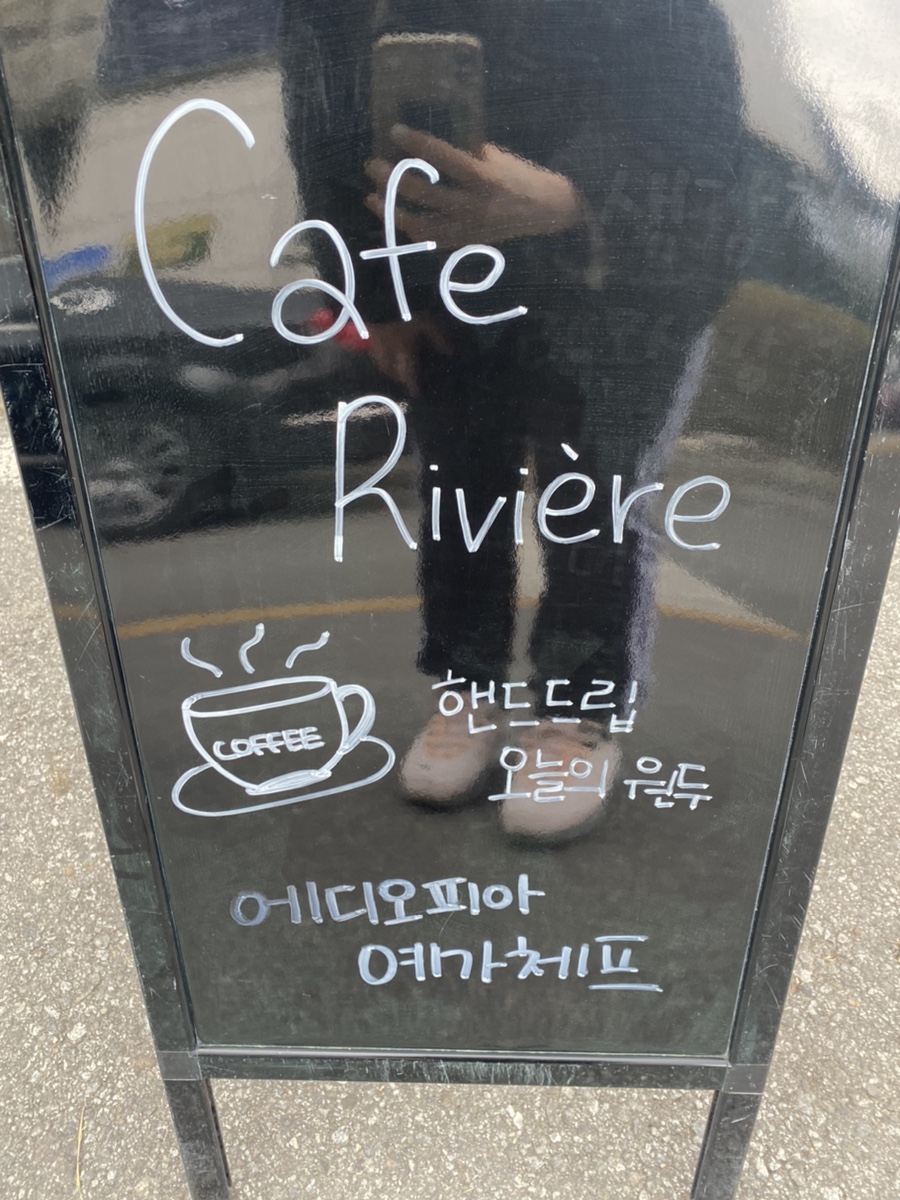 Cafe
Rivière
COFFEE
핸드드립
오늘의 원두
에디오피아
예가체프